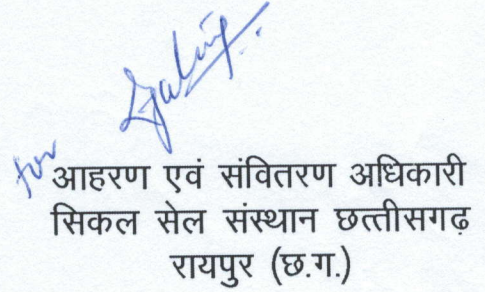 for
आहरण एवं संवितरण अधिकारी
सिकल सेल संस्थान छत्तीसगढ़
रायपुर (छ.ग.)